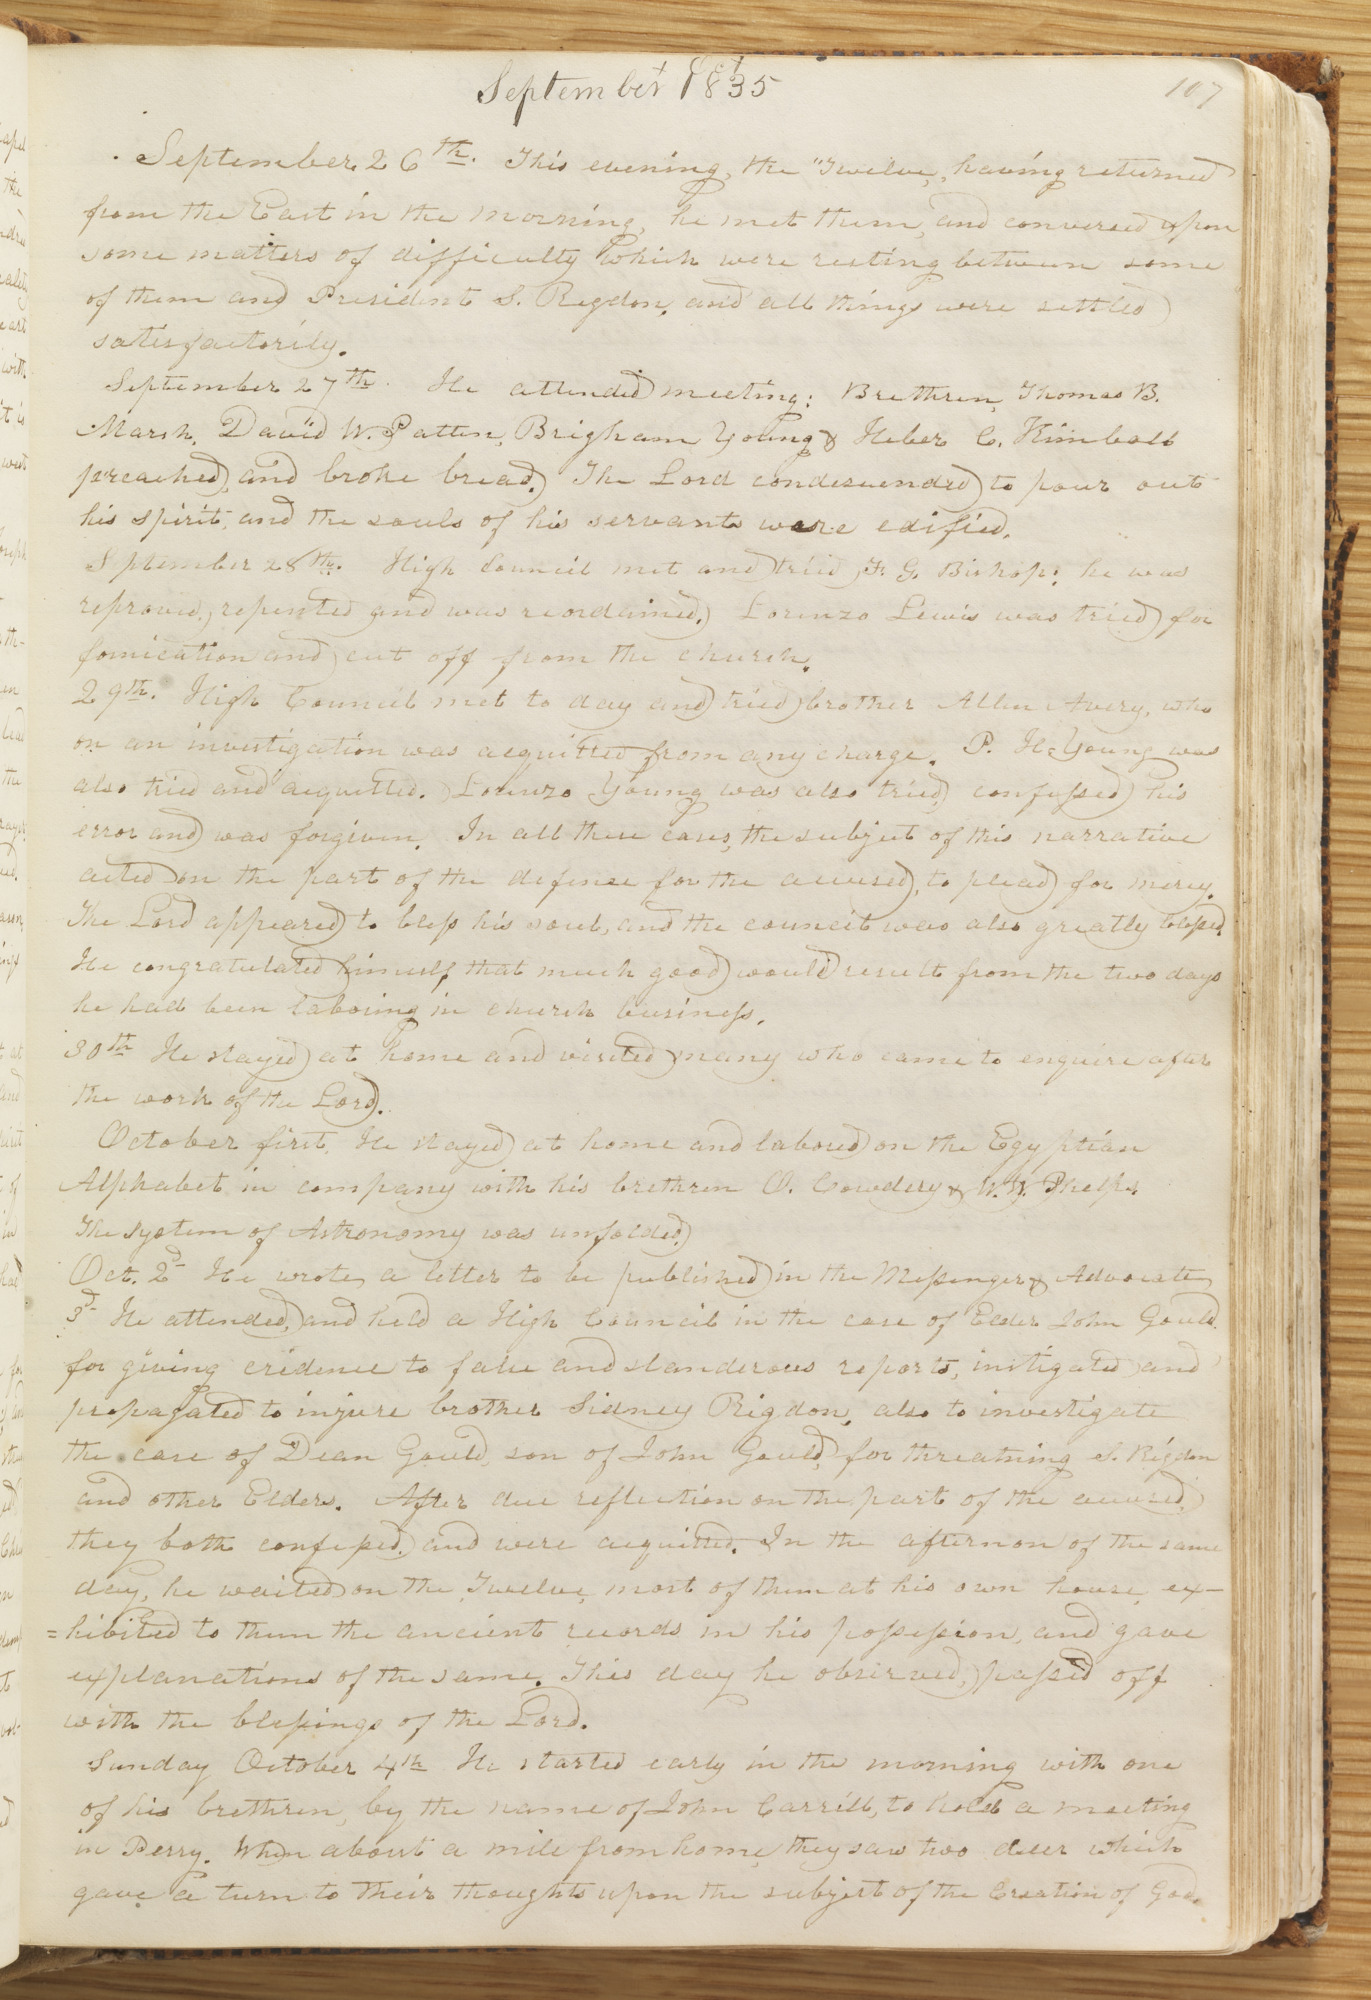 September & Oct 1835
107
September 26th. This evening, the "Twelve, having returned
from the East in the morning, he met them, and conversed upon
some matters of difficulty which were resting between some
of them and President S. Rigdon, and all things were settled
satisfactorily.
September 27th. He attended meeting: Brethren, Thomas B.
Marsh, David W. Patten, Brigham Young & Heber C. Kimball
preached, and broke bread. The Lord condescended to pour out
his spirit, and the souls of his servants were edified.
September 28th. High Council met and tried F. G. Bishop: he was
reproved, repented and was reordained. Lorenzo Lewis was tried for
fornication and cut off from the church.
29th. High Council met to day and tried brother Allen Avery, who
on an investigation was acquitted from any charge. P. H. Young was
also tried and acquitted. Lorenzo Young was also tried, confessed his
error and was forgiven. In all these cases, the subject of this narrative
acted on the part of the defense for the accused, to plead for mercy.
The Lord appeared to bless his soul, and the council was also greatly blessed.
He congratulated himself, that much good would result from the two days
he had been laboring in church business.
30th He stayed at home and visited many who came to enquire after
the work of the Lord.
October first, He stayed at home and labored on the Egyptian
Alphabet in company with his brethren O. Cowdery & W. W. Phelps.
The system of Astronomy was unfolded.
Oct. 2d He wrote a letter to be published in the Messenger & Advocate
3d He attended, and held a High Council in the case of Elder John Gould
for giving credence to false and slanderous reports, instigated and
propagated to injure brother Sidney Rigdon, also to investigate
the case of Dean Gould, son of John Gould, for threatning S. Rigdon
and other Elders. After due reflection on the part of the accused,
they both confessed, and were acquitted. In the afternoon of the same
day, he waited on the Twelve, most of them at his own house, ex-
=hibited to them the ancient records in his possession, and gave
explanations of the same. This day he observed, passed off
with the blessings of the Lord.
Sunday October 4th He started early in the morning with one
of his brethren, by the name of John Carrill, to hold a meeting
in Perry. When about a mile from home, they saw two deer which
gave a turn to their thoughts upon the subject of the Creation of God.